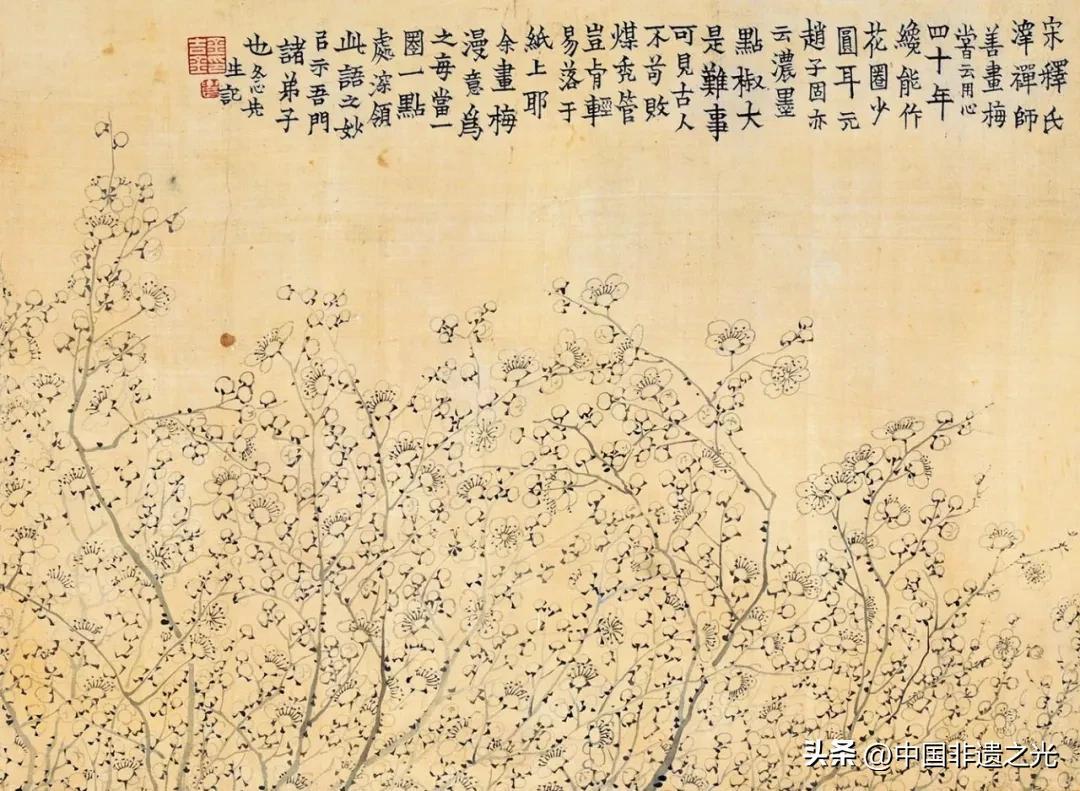 宋釋氏
澤禪師
善畫梅
嘗云用心
四十年
纔能作
花圈少
圓耳元
趙子固亦
云濃墨
點椒大
是難事
可見古人
不苟敗
煤禿管
豈肯輕
易落于
紙上耶
余畫梅
漫意爲
之每當一
圈一點
處深領
此語之妙
㠯示吾門
諸弟子
也冬心先
生記
头条 @中国非遗之光